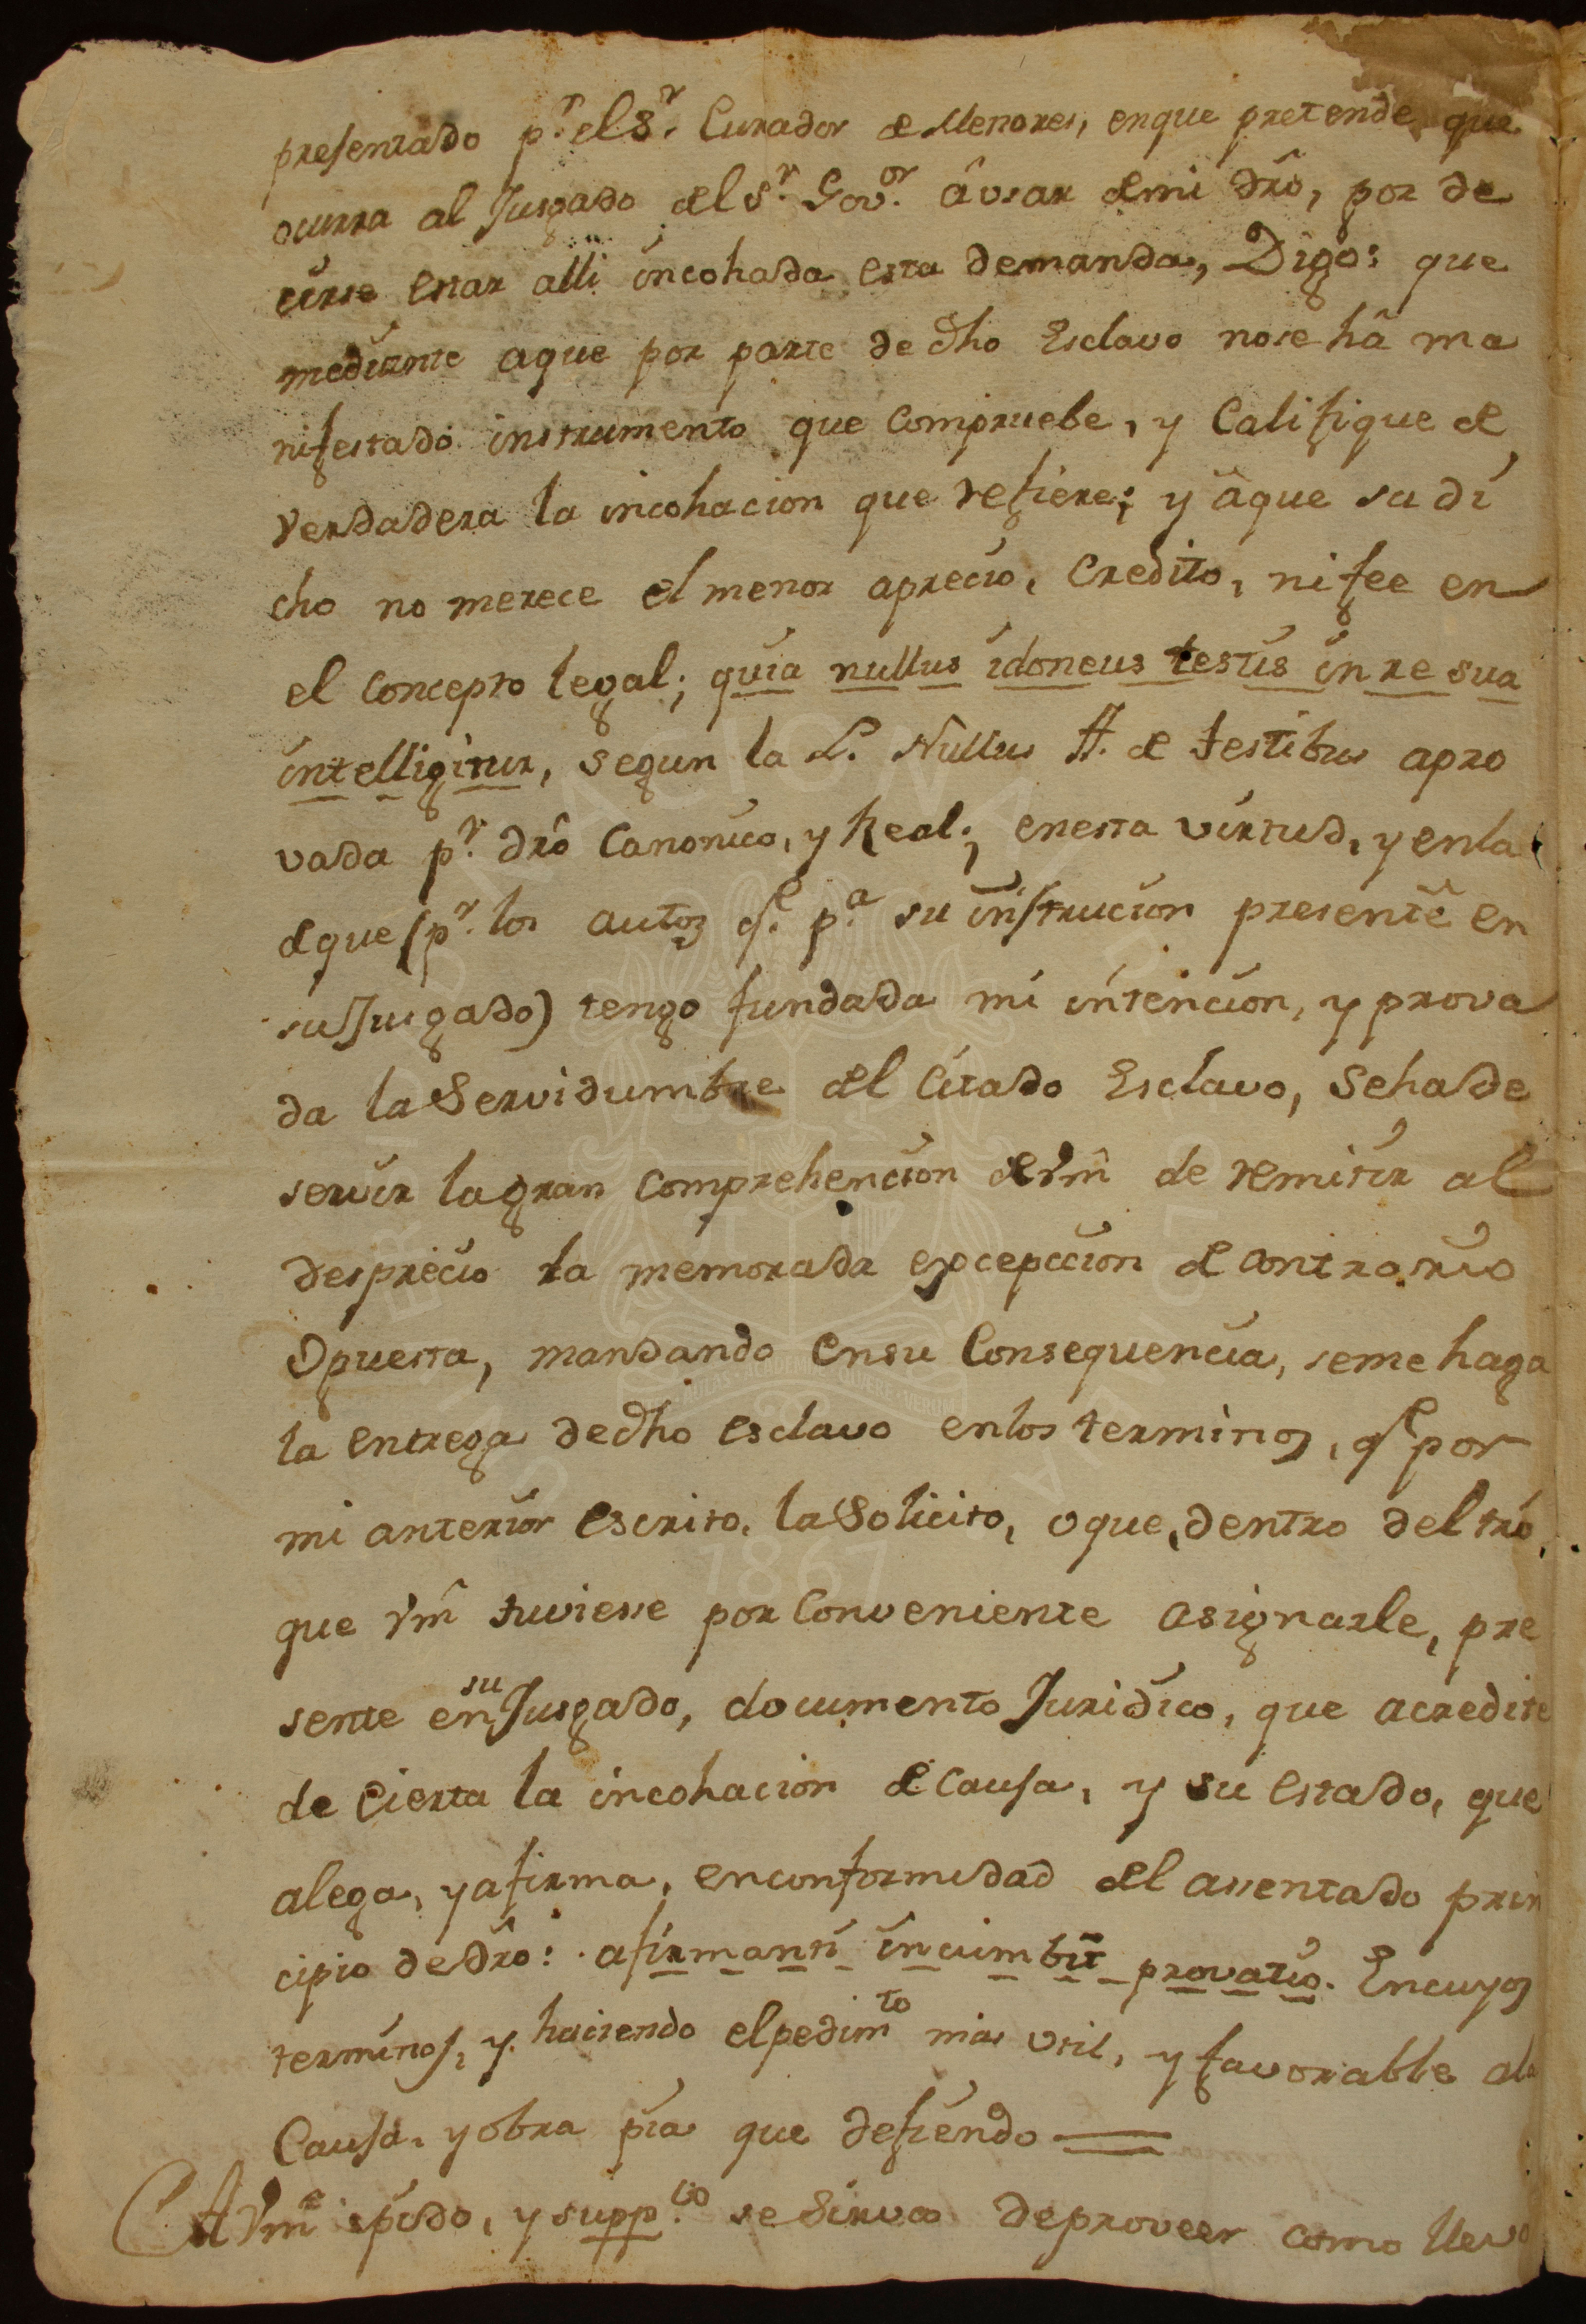 presentado p.r el S.r Curador de Menores, enque pretende que
ocurra al Jusgado del S.r Gov.or âusar de mi dro, por de
cirse estar alli incohada esta demanda, Digo: que
mediante aque por parte de dho Esclavo nose hâ ma
nifestado instrumento que compruebe, y Califique de
verdadera la incohacion que refiere; y âque su di
cho no merece el menor aprecio, credito, ni fee en
el concepto legal; quia nullus idoneus testis in re sua
intelligitur, segun la L. Nullus ff. de testibus apro
vada p.r dro Canonico, y Real; enesta virtud, y enla
de que (p.r los autos q.e p.a su instrucion presente en
su Jusgado) tengo fundada mi intencion, y prova
da la Servidumbre del citado Esclavo, Sehade
servir lagran comprehencion de Vm de remitir al
desprecio la memorada excepccion de contrario
Opuesta, mandando ensu Consequencia, seme haga
la entrega dedho esclavo enlos terminos, q.e por
mi anterior escrito, la Solicito, o que, dentro del tro,
que Vm tuviesse por Conveniente asignarle, pre
sente en su Jusgado, documento Juridico, que acredite
de cierta la incohacion de causa, y su estado, que
alega, y afirma, enconformidad del assentado prin
cipio dedro: afirmanti incumbit provatio. Encuyos
terminos, y haciendo elpedim.to mas util, y favorable ala
Causa, y obra pia que defiendo
A Vm pido, y supp.co se Sirva deproveer como llevo
UNIVERSIDAD NACIONAL DE COLOMBIA
1867